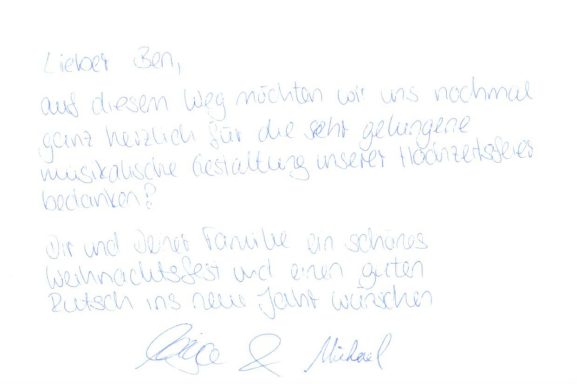 Lieber Ben,
auf diesem Weg möchten wir uns nochmal
ganz herzlich für die sehr gelungene
musikalische Gestaltung unserer Hochzeitsfeier
bedanken!
Dir und Deiner Familie ein schönes
Weihnachtsfest und einen guten
Rutsch ins neue Jahr wünschen
& Michael